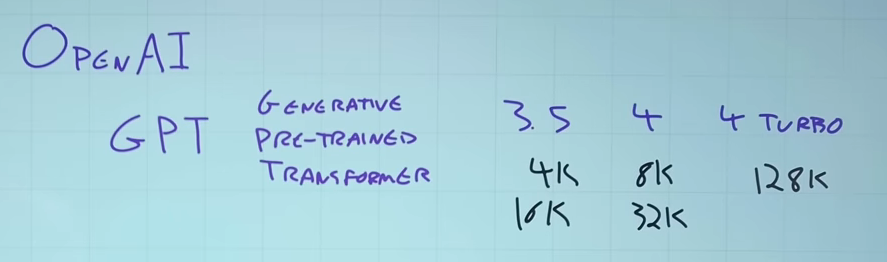 OPENAI
GPT
GENERATIVE
PRE-TRAINED
TRANSFORMER
3.5 4 4 TURBO
4K 8K 128K
16K 32K